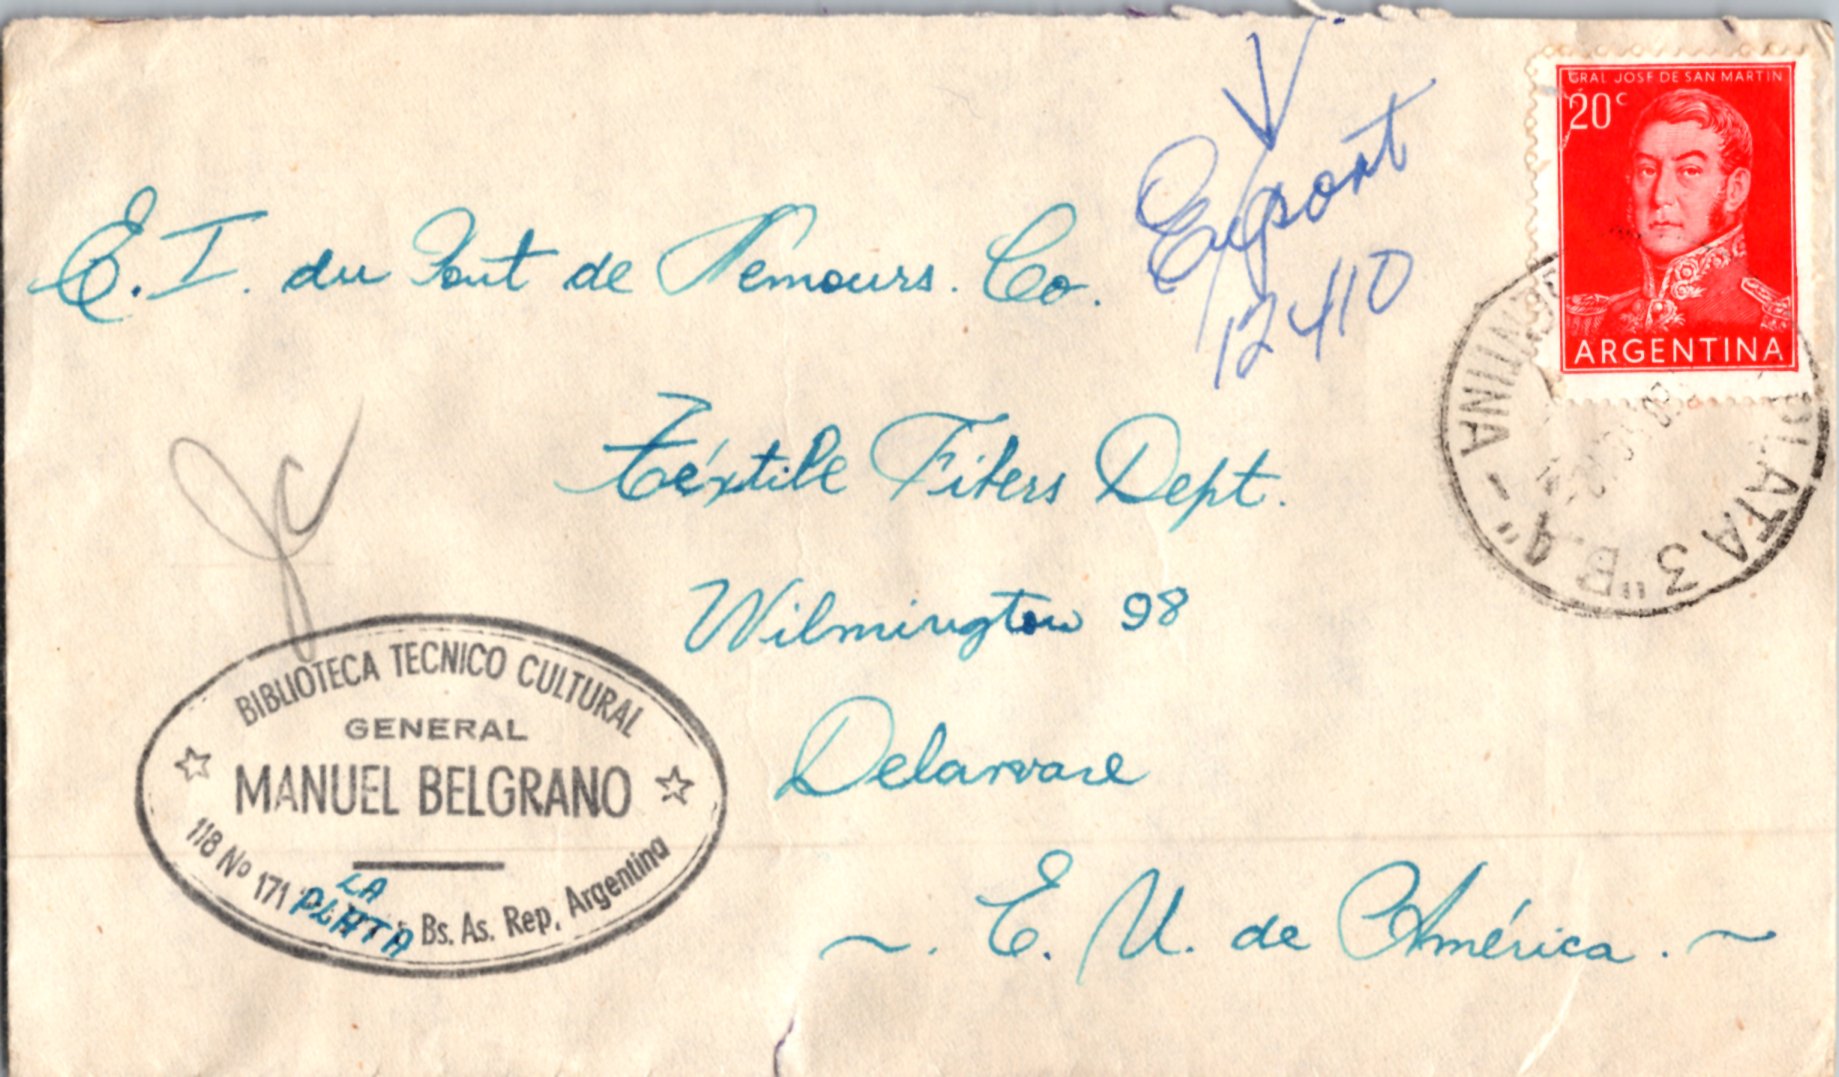 GRAL JOSE DE SAN MARTIN
20c
ARGENTINA
Export
12410
E. I. du Pont de Nemours. Co.
Téxtile Fibers Dept.
Wilmington 98
Delaware
~. E. U. de América. ~
Jc
BIBLIOTECA TECNICO CULTURAL
GENERAL
☆ MANUEL BELGRANO ☆
118 Nº 171 LA PLATA Bs. As. Rep. Argentina
PLATA 3 "B.4" - ARGENTINA